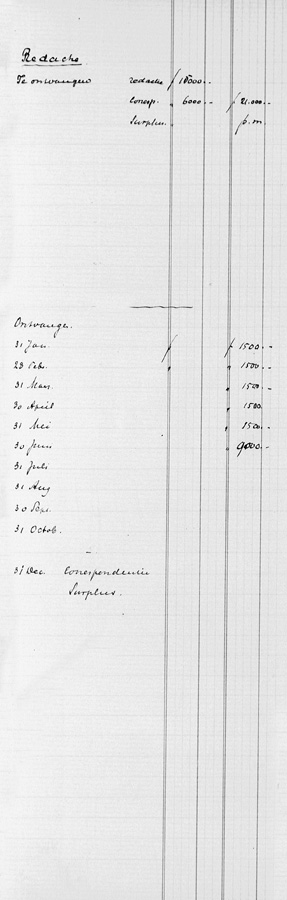 Redactie
Te ontvangen redactie ƒ 18000.--
Corresp. " 6000.-- ƒ 21.000.--
Surplus. " p.m.
Ontvangen.
31 Jan. ƒ ƒ 1500.--
28 Feb. " " 1500.--
31 Maa. " 1500.--
30 April " 1500.
31 Mei " 1500.--
30 Juni " 9000.--
31 Juli
31 Aug
30 Sept.
31 Octob.
31 Dec. Correspondentie
Surplus.